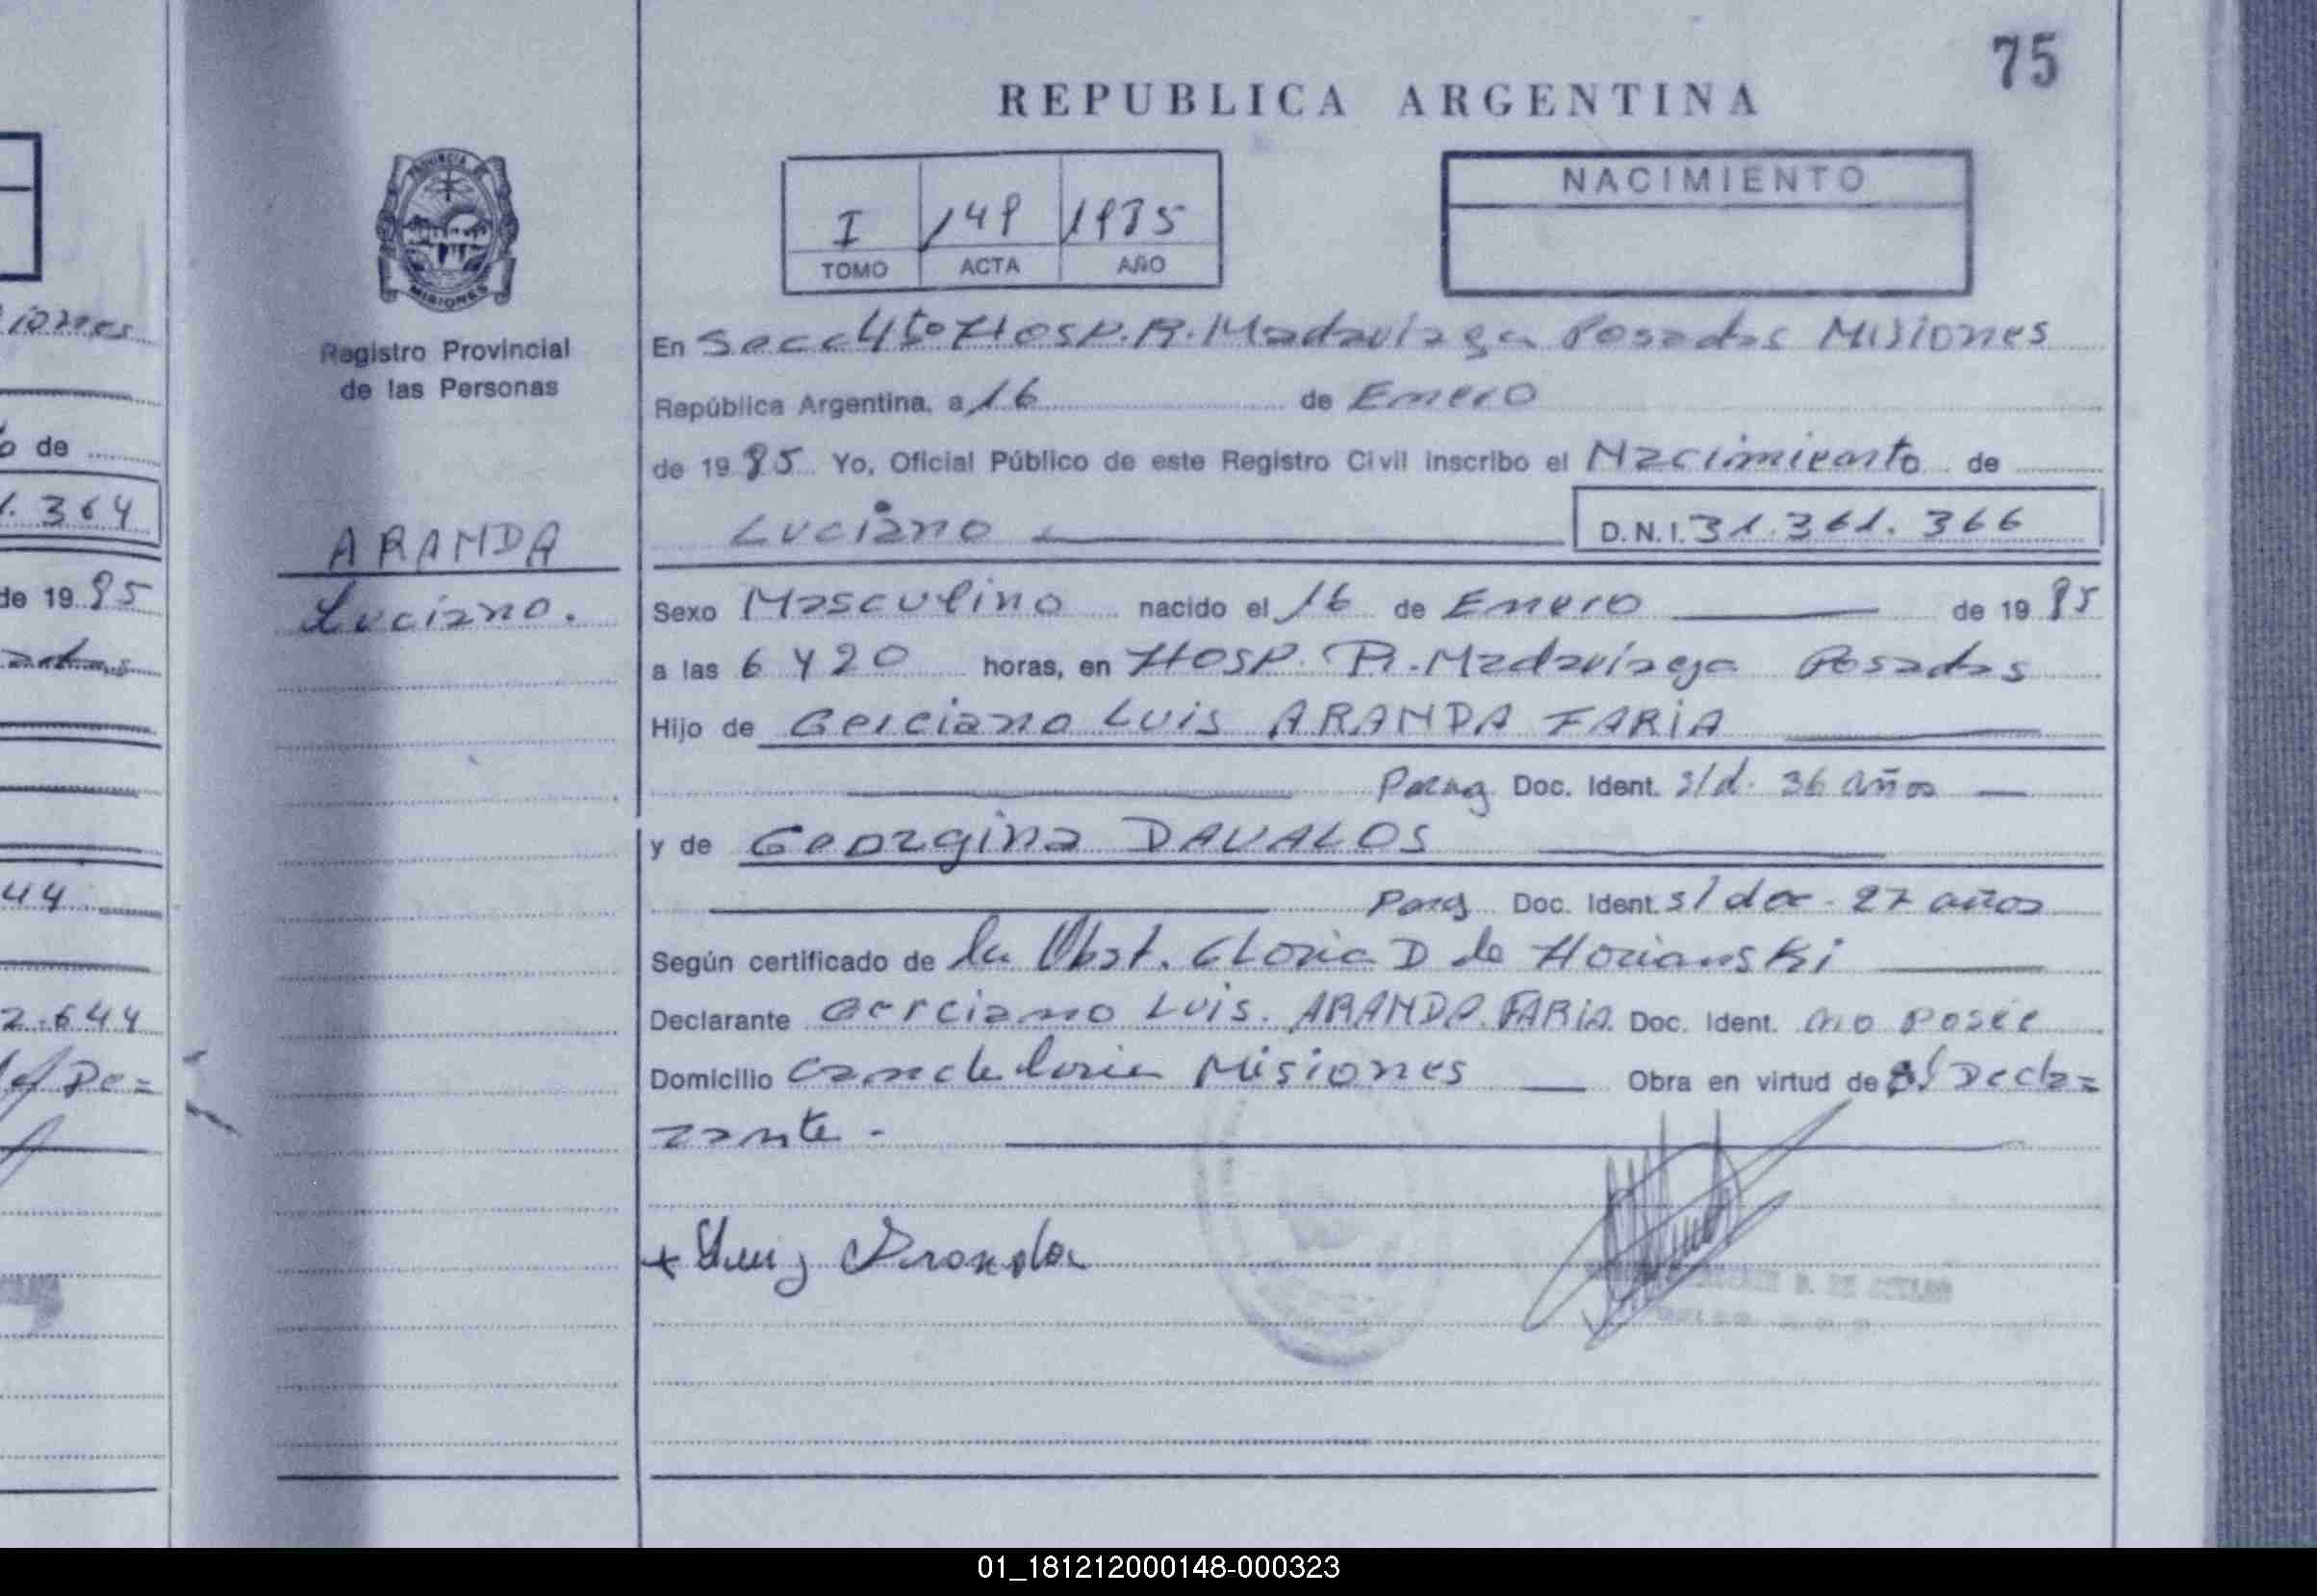 75
REPUBLICA ARGENTINA
PROVINCIA DE
MISIONES
Registro Provincial
de las Personas
I 149 1985
TOMO ACTA AÑO
NACIMIENTO
En Secc 4to Hosp. R. Madariaga Posadas Misiones
República Argentina, a 16 de Enero
de 1985 Yo, Oficial Público de este Registro Civil inscribo el Nacimiento de
Luciano
D.N.I. 31.361.366
ARANDA
Luciano.
Sexo Masculino nacido el 16 de Enero de 1985
a las 6 y 20 horas, en Hosp. R. Madariaga Posadas
Hijo de Gerciano Luis ARANDA FARIA
Parag Doc. Ident. s/d. 36 años
y de Georgina DAVALOS
Parag Doc. Ident. s/doc - 27 años
Según certificado de la Obst. Gloria D de Horianski
Declarante Gerciano Luis. ARANDA FARIA. Doc. Ident. no posee
Domicilio Candelaria Misiones Obra en virtud de el Decla=
rante -
+ Luis Aranda
iones
de
1.364
de 1985
44
2.644
el De=
01_181212000148-000323